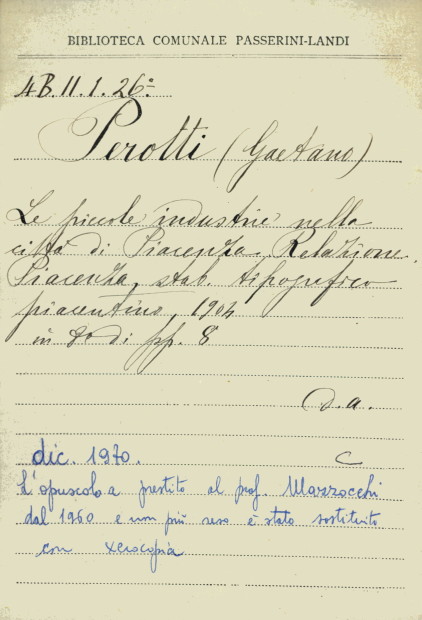 BIBLIOTECA COMUNALE PASSERINI-LANDI
4B.II.1.26º
Perotti (Gaetano)
Le piccole industrie nella
città di Piacenza. Relazione.
Piacenza, stab. tipografico
piacentino, 1904
in 8º di pp. 8
d.a.
dic. 1970. C
L'opuscolo a prestito al prof. Mazzocchi
dal 1960 e non più reso è stato sostituito
con xerocopia